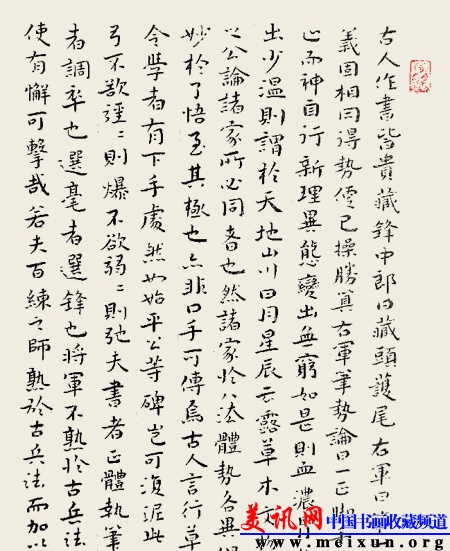 古人作書皆貴藏鋒中郎曰藏頭護尾右軍曰
義固相同得勢便已操勝算右軍筆勢論曰一正脚
心而神自行新理異態變出無窮如是則血濃
出少溫則謂於天地山川日月星辰雲露草木文
以公論諸家所必同者也然諸家於八法體勢各異
妙於了悟至其極也亦非口手可傳焉古人言行草
令學者有下手處然如始平公等碑豈可復泥此
弓不欲勁二則爆不欲弱二則弛夫書者正體執筆
者調率也選毫者選鋒也將軍不熟於古兵法
使有懈可擊哉若夫百練之師熟於古兵法而加以
美讯网 中国书画收藏频道
www.meixun.org